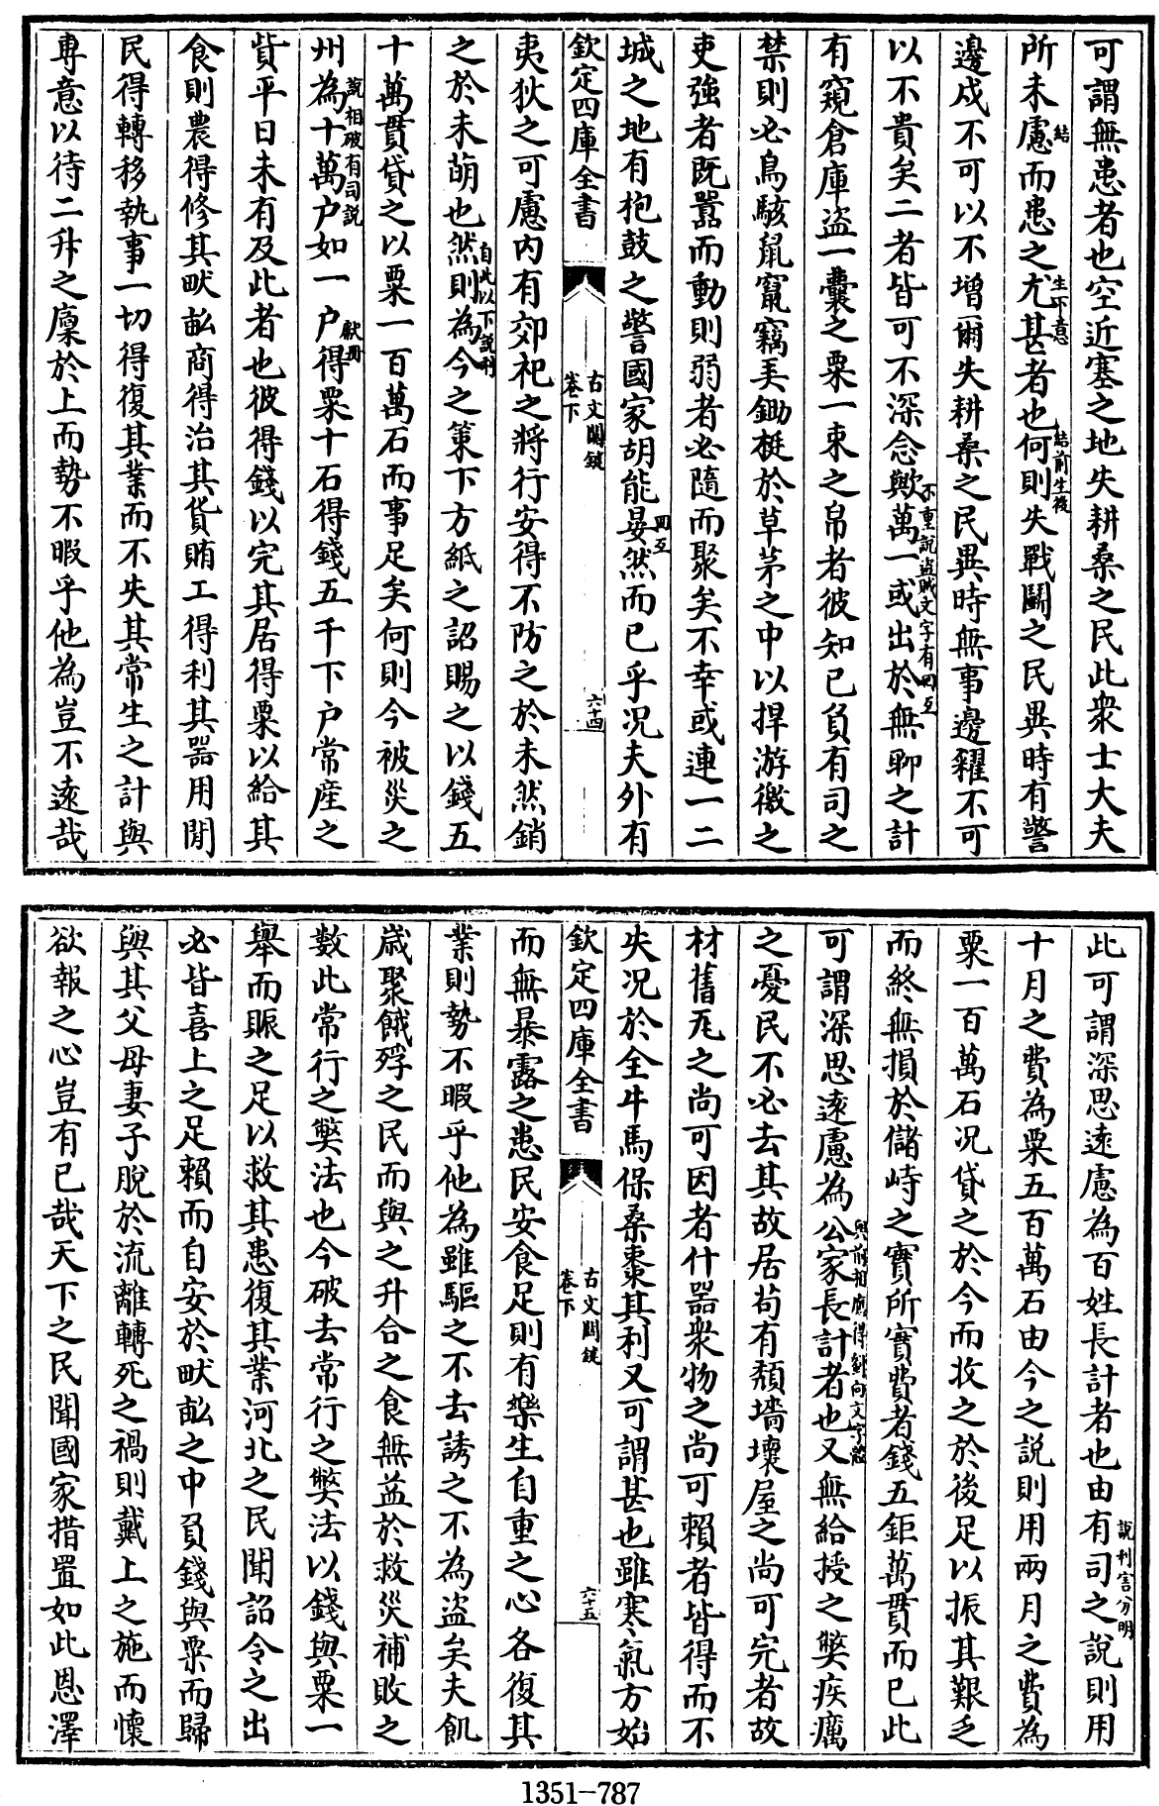 可謂無患者也空近塞之地失耕桑之民此衆士大夫
所未慮而患之尤甚者也何則失戰鬭之民異時有警
結
生下意
結前生後
邊戍不可以不增爾失耕桑之民異時無事邊糴不可
以不貴矣二者皆可不深念歟萬一或出於無聊之計
不重說盗賊文字有回互
有窺倉庫盜一囊之粟一束之帛者彼知已負有司之
禁則必鳥駭鼠竄竊弄鋤梃於草茅之中以捍游徼之
吏強者既囂而動則弱者必隨而聚矣不幸或連一二
城之地有枹鼓之警國家胡能晏然而已乎况夫外有
回互
欽定四庫全書
古文關鍵
卷下
六十四
夷狄之可慮内有郊祀之將行安得不防之於未然銷
之於未萌也然則為今之策下方紙之詔賜之以錢五
自此以下說利
十萬貫貸之以粟一百萬石而事足矣何則今被災之
州為十萬户如一户得粟十石得錢五千下户常産之
說相破有司說
獻冊
貲平日未有及此者也彼得錢以完其居得粟以給其
食則農得修其畎畝商得治其貨賄工得利其器用閒
民得轉移執事一切得復其業而不失其常生之計與
專意以待二升之廩於上而勢不暇乎他為豈不遠哉
此可謂深思遠慮為百姓長計者也由有司之說則用
說利害分明
十月之費為粟五百萬石由今之說則用兩月之費為
粟一百萬石况貸之於今而收之於後足以振其艱乏
而終無損於儲峙之實所實費者錢五鉅萬貫而已此
可謂深思遠慮為公家長計者也又無給授之弊疾癘
與前相應得
向文字
之憂民不必去其故居苟有頽墻壞屋之尚可完者故
材舊瓦之尚可因者什器衆物之尚可賴者皆得而不
失况於全牛馬保桑棗其利又可謂甚也雖寒氣方始
欽定四庫全書
古文關鍵
卷下
六十五
而無暴露之患民安食足則有樂生自重之心各復其
業則勢不暇乎他為雖驅之不去誘之不為盜矣夫飢
歳聚餓殍之民而與之升合之食無益於救災補敗之
數此常行之弊法也今破去常行之弊法以錢與粟一
舉而賑之足以救其患復其業河北之民聞詔令之出
必皆喜上之足賴而自安於畎畝之中負錢與粟而歸
與其父母妻子脫於流離轉死之禍則戴上之施而懷
欲報之心豈有已哉天下之民聞國家措置如此恩澤
1351-787